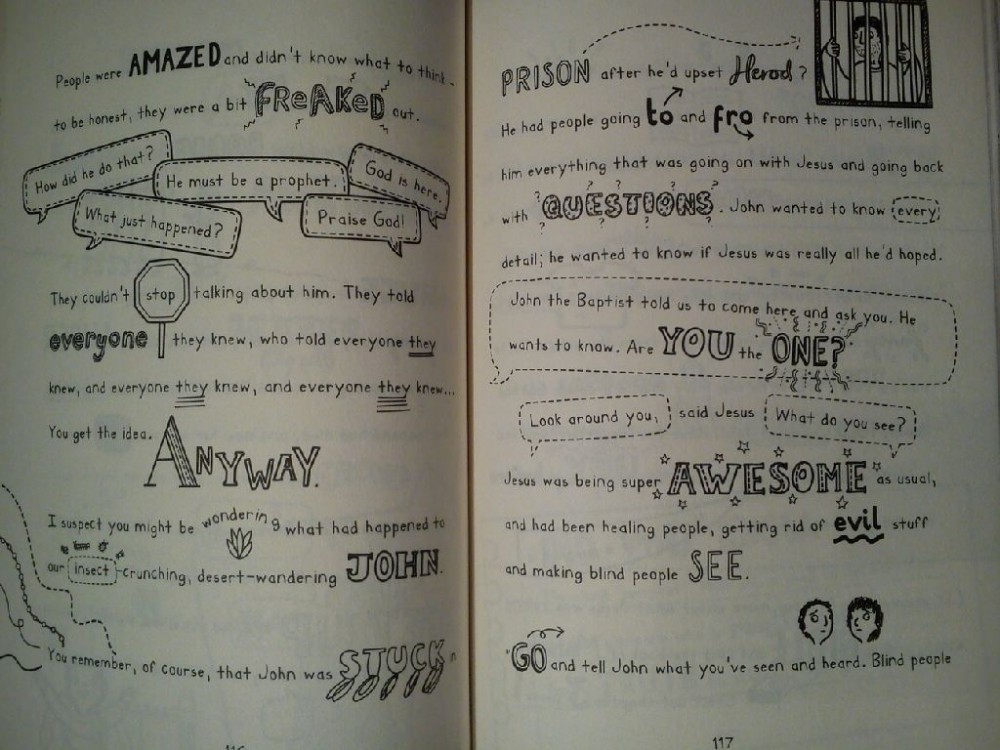 People were AMAZED and didn't know what to think -
to be honest, they were a bit FREAKED out.
How did he do that?
He must be a prophet.
God is here.
What just happened?
Praise God!
They couldn't stop talking about him. They told
everyone they knew, who told everyone they
knew, and everyone they knew, and everyone they knew...
You get the idea. ANYWAY.
I suspect you might be wondering what had happened to
our insect-crunching, desert-wandering JOHN.
You remember, of course, that John was STUCK
116
PRISON after he'd upset Herod?
He had people going to and fro from the prison, telling
him everything that was going on with Jesus and going back
with ? ? ? ? QUESTIONS ? ? ?. John wanted to know every
detail; he wanted to know if Jesus was really all he'd hoped.
John the Baptist told us to come here and ask you. He
wants to know. Are YOU the ONE?
Look around you, said Jesus What do you see?
Jesus was being super AWESOME as usual,
and had been healing people, getting rid of evil stuff
and making blind people SEE.
"GO and tell John what you've seen and heard. Blind people
117